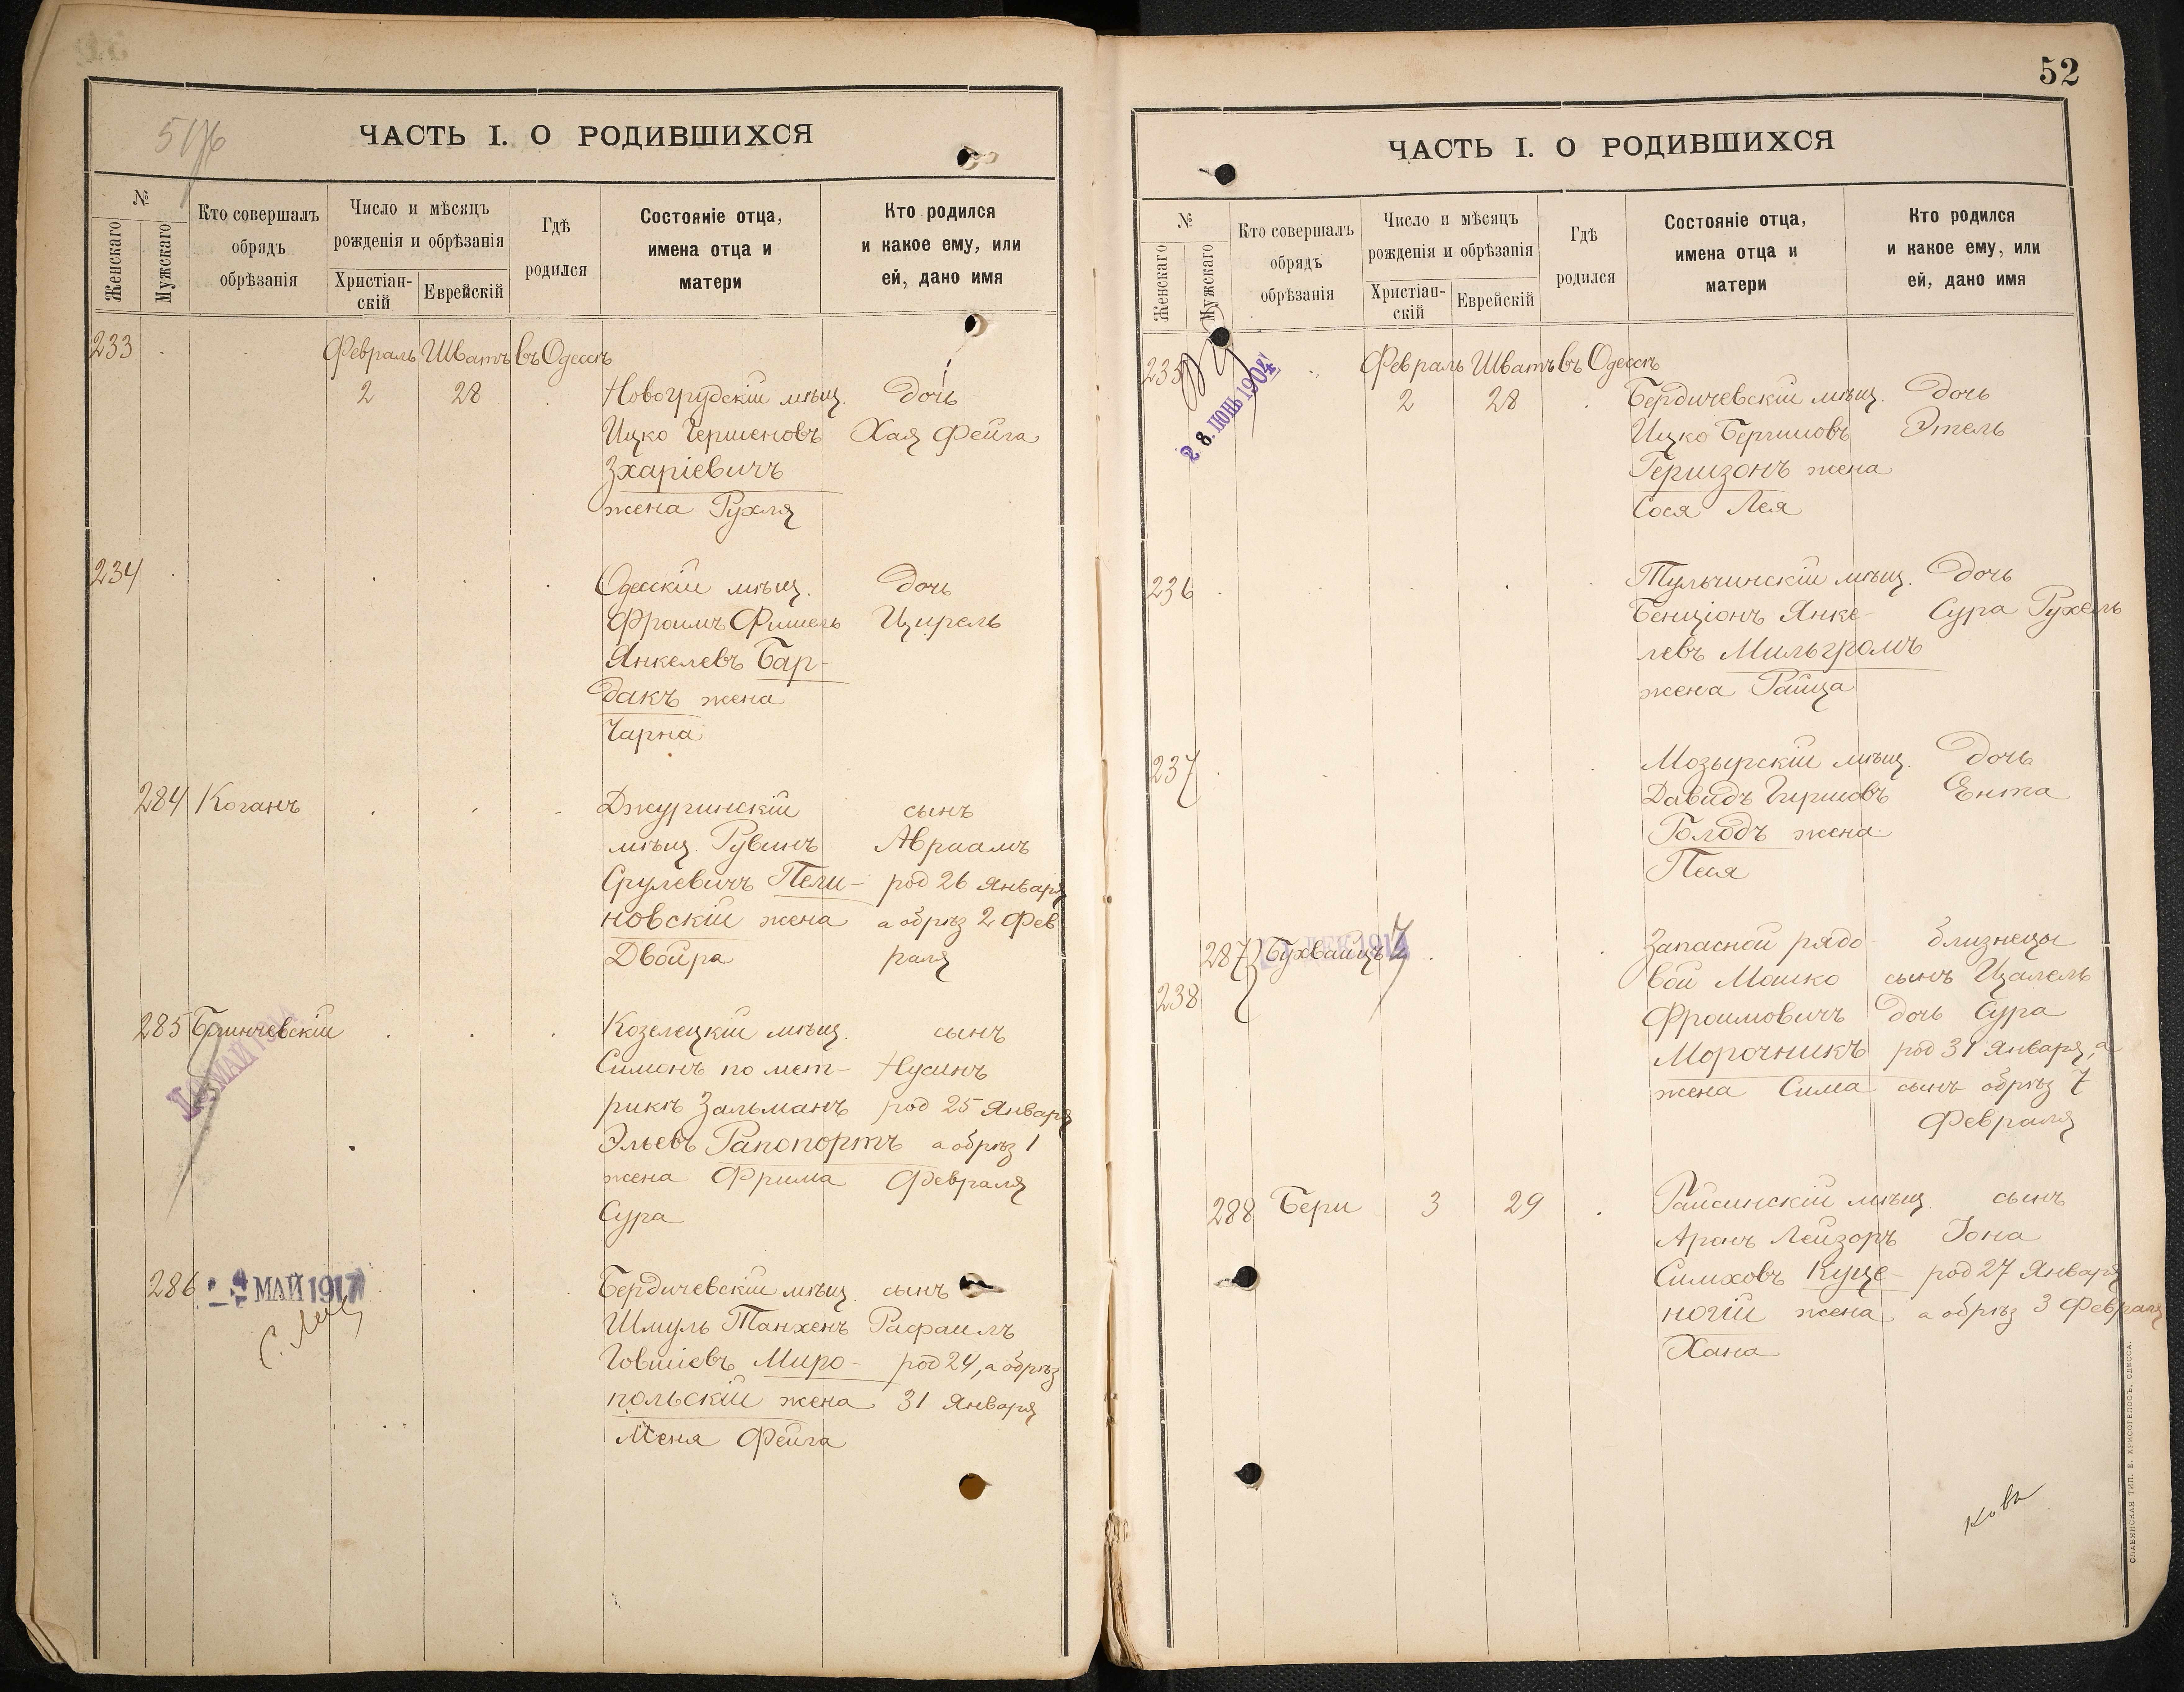 516
ЧАСТЬ I. О РОДИВШИХСЯ
№
Женскаго
Мужскаго
Кто совершалъ
обрядъ
обрѣзанія
Число и мѣсяцъ
рожденія и обрѣзанія
Христіан-
скій
Еврейскій
Гдѣ
родился
Состояніе отца,
имена отца и
матери
Кто родился
и какое ему, или
ей, дано имя
233
Февраль Шватъ въ Одессѣ
2 28 Новогрудскій мѣщ. дочь
Ицко Гершеновъ Хая Фейга
Зхаріевичъ
жена Рухля
234 Одесскій мѣщ. дочь
Фроимъ Фишель Цирель
Янкелевъ Бар-
дакъ жена
Чарна
284 Коганъ Джуринскій сынъ
мѣщ. Рувинъ Авраамъ
Срулевичъ Пели- род 26 Января
новскій жена а обрѣз 2 Фев
Двойра раля
285 Козелецкій мѣщ. сынъ
Симонъ по мет- Нусинъ
рикѣ Зальманъ род 25 Января
Эльевъ Рапопортъ а обрѣз 1
жена Фрима Февраля
Сура
286 МАЙ 1917 Бердичевскій мѣщ. сынъ
Шмуль Танхенъ Рафаилъ
Говшіевъ Миро- род 24, а обрѣз
польскій жена 31 Января
Меня Фейга
52
ЧАСТЬ I. О РОДИВШИХСЯ
№
Женскаго
Мужскаго
Кто совершалъ
обрядъ
обрѣзанія
Число и мѣсяцъ
рожденія и обрѣзанія
Христіан-
скій
Еврейскій
Гдѣ
родился
Состояніе отца,
имена отца и
матери
Кто родился
и какое ему, или
ей, дано имя
235
28. ІЮНЬ 1904
Февраль Шватъ въ Одессѣ
2 28 Бердичевскій мѣщ. дочь
Ицко Бергиновъ Этель
Гершзонъ жена
Сося Лея
236 Тульчинскій мѣщ. дочь
Бенціонъ Янке- Сура Рухель
левъ Мильгромъ
жена Райца
237 Мозырскій мѣщ. дочь
Давидъ Гиршовъ Ента
Голодъ жена
Песя
287 Бухвайцъ Запасной рядо- близнецы
238 вой Мошко сынъ Цалель
Фроимовичъ дочь Сура
Морочникъ род 31 Января, а
жена Сима сынъ обрѣз 7
Февраля
288 Бери 3 29 Райсинскій мѣщ. сынъ
Аронъ Лейзоръ Іона
Симховъ Куце- род 27 Января
ногій жена а обрѣз 3 Февраля
Хана
СЛАВЯНСКАЯ ТИП. Е. ХРИСОГЕЛОСЪ, ОДЕССА.